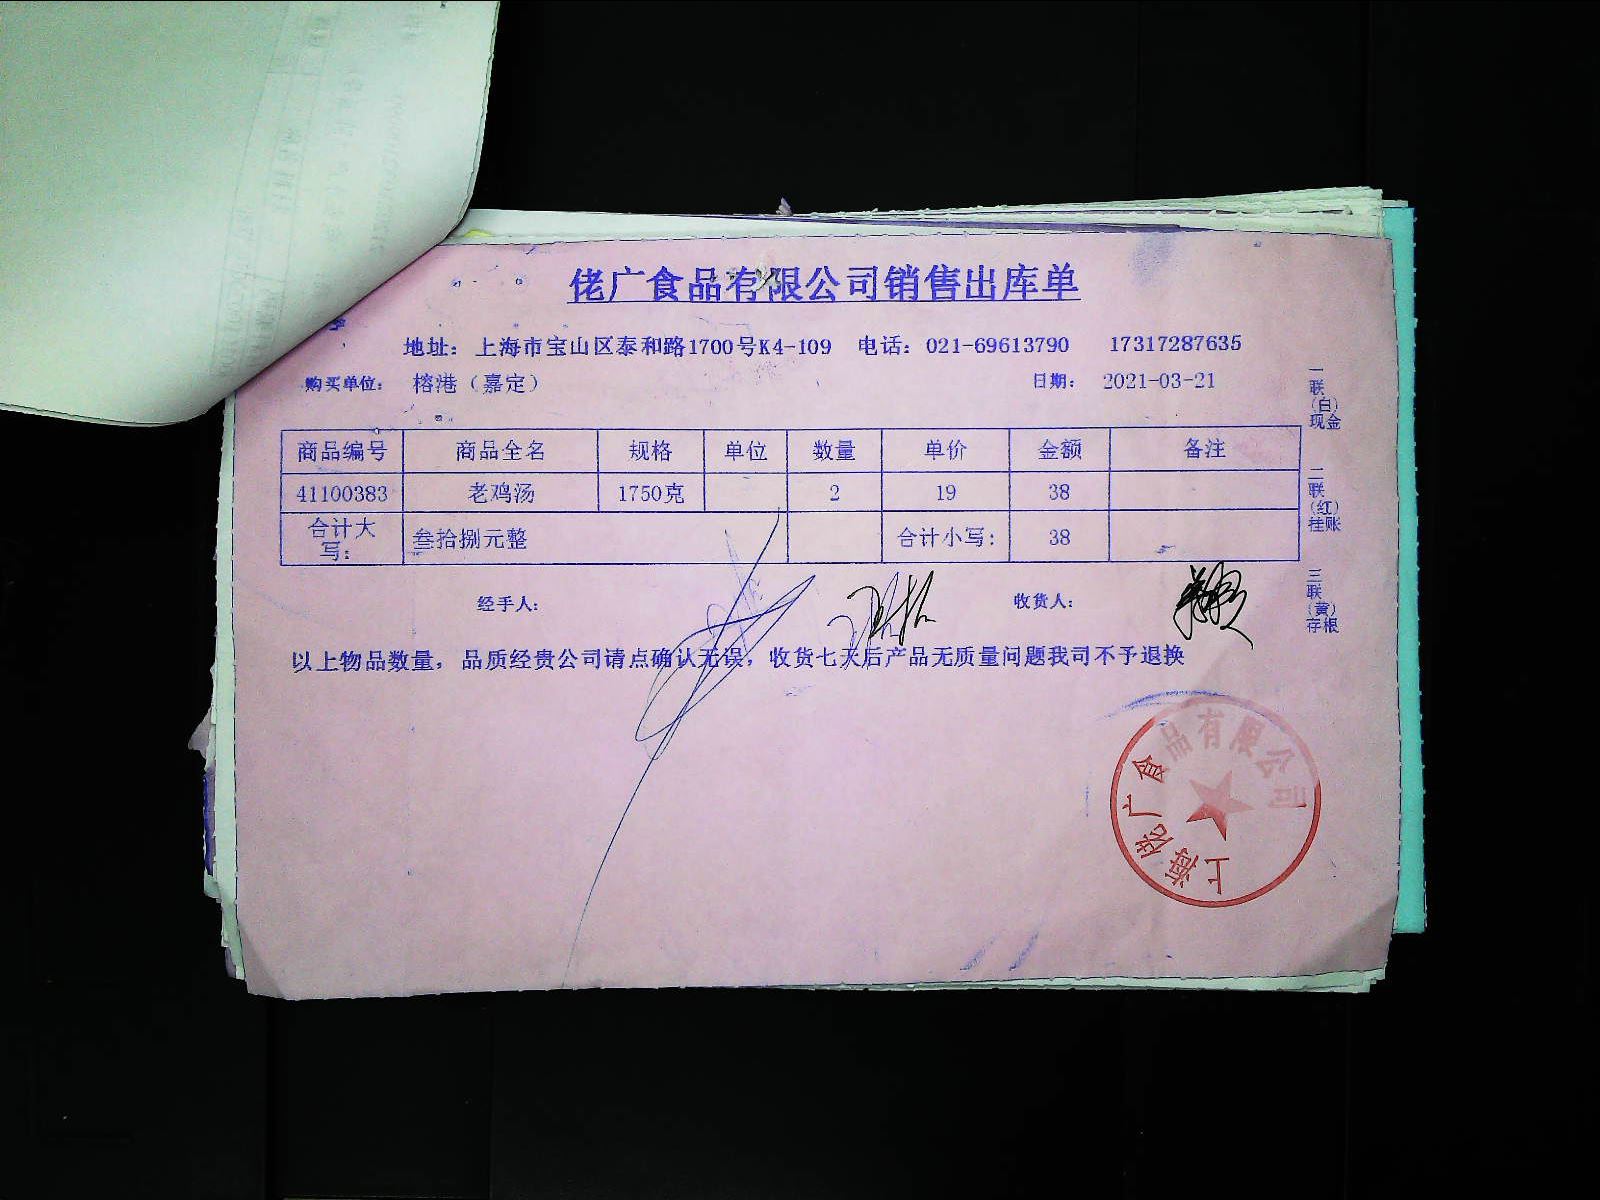 佬广食品有限公司销售出库单
地址：上海市宝山区泰和路1700号K4-109 电话：021-69613790 17317287635
购买单位： 榕港（嘉定） 日期： 2021-03-21
商品编号 商品全名 规格 单位 数量 单价 金额 备注
41100383 老鸡汤 1750克 2 19 38
合计大写： 叁拾捌元整 合计小写： 38
经手人： 收货人：
以上物品数量，品质经贵公司请点确认无误，收货七天后产品无质量问题我司不予退换
一联（白）现金
二联（红）挂账
三联（黄）存根
上海佬广食品有限公司